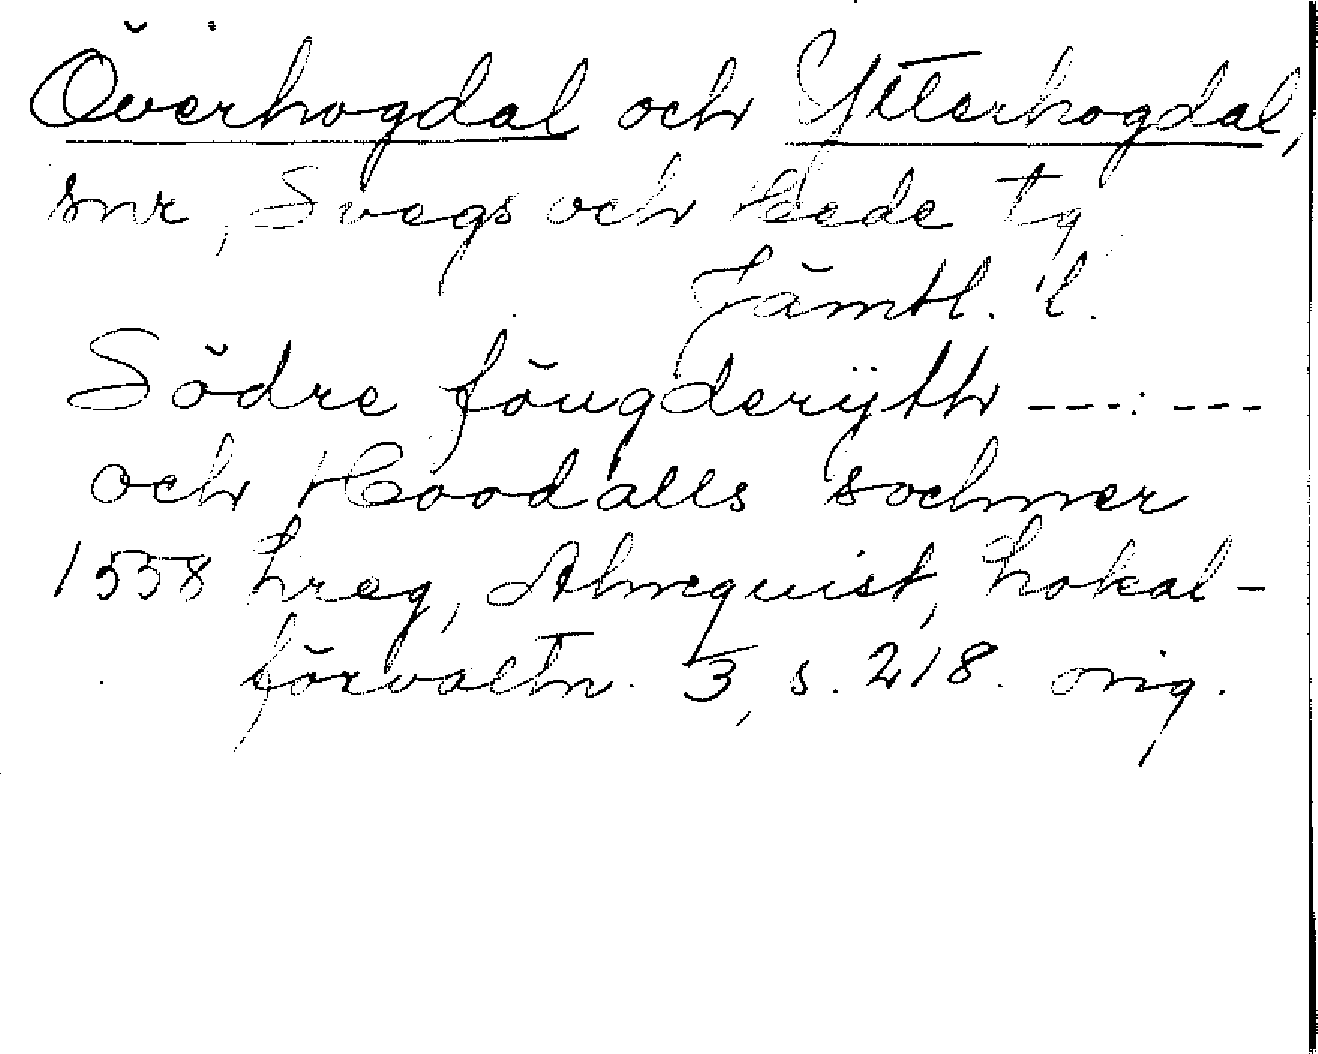 Överhogdal och Ytterhogdal,
snr, Svegs och Hede tg
Jämtl. l.
Södre föugderijth ---:---
och Hoodalls sochner
1558 Lreg, Almquist, Lokal-
förvaltn. 3, s. 218. orig.